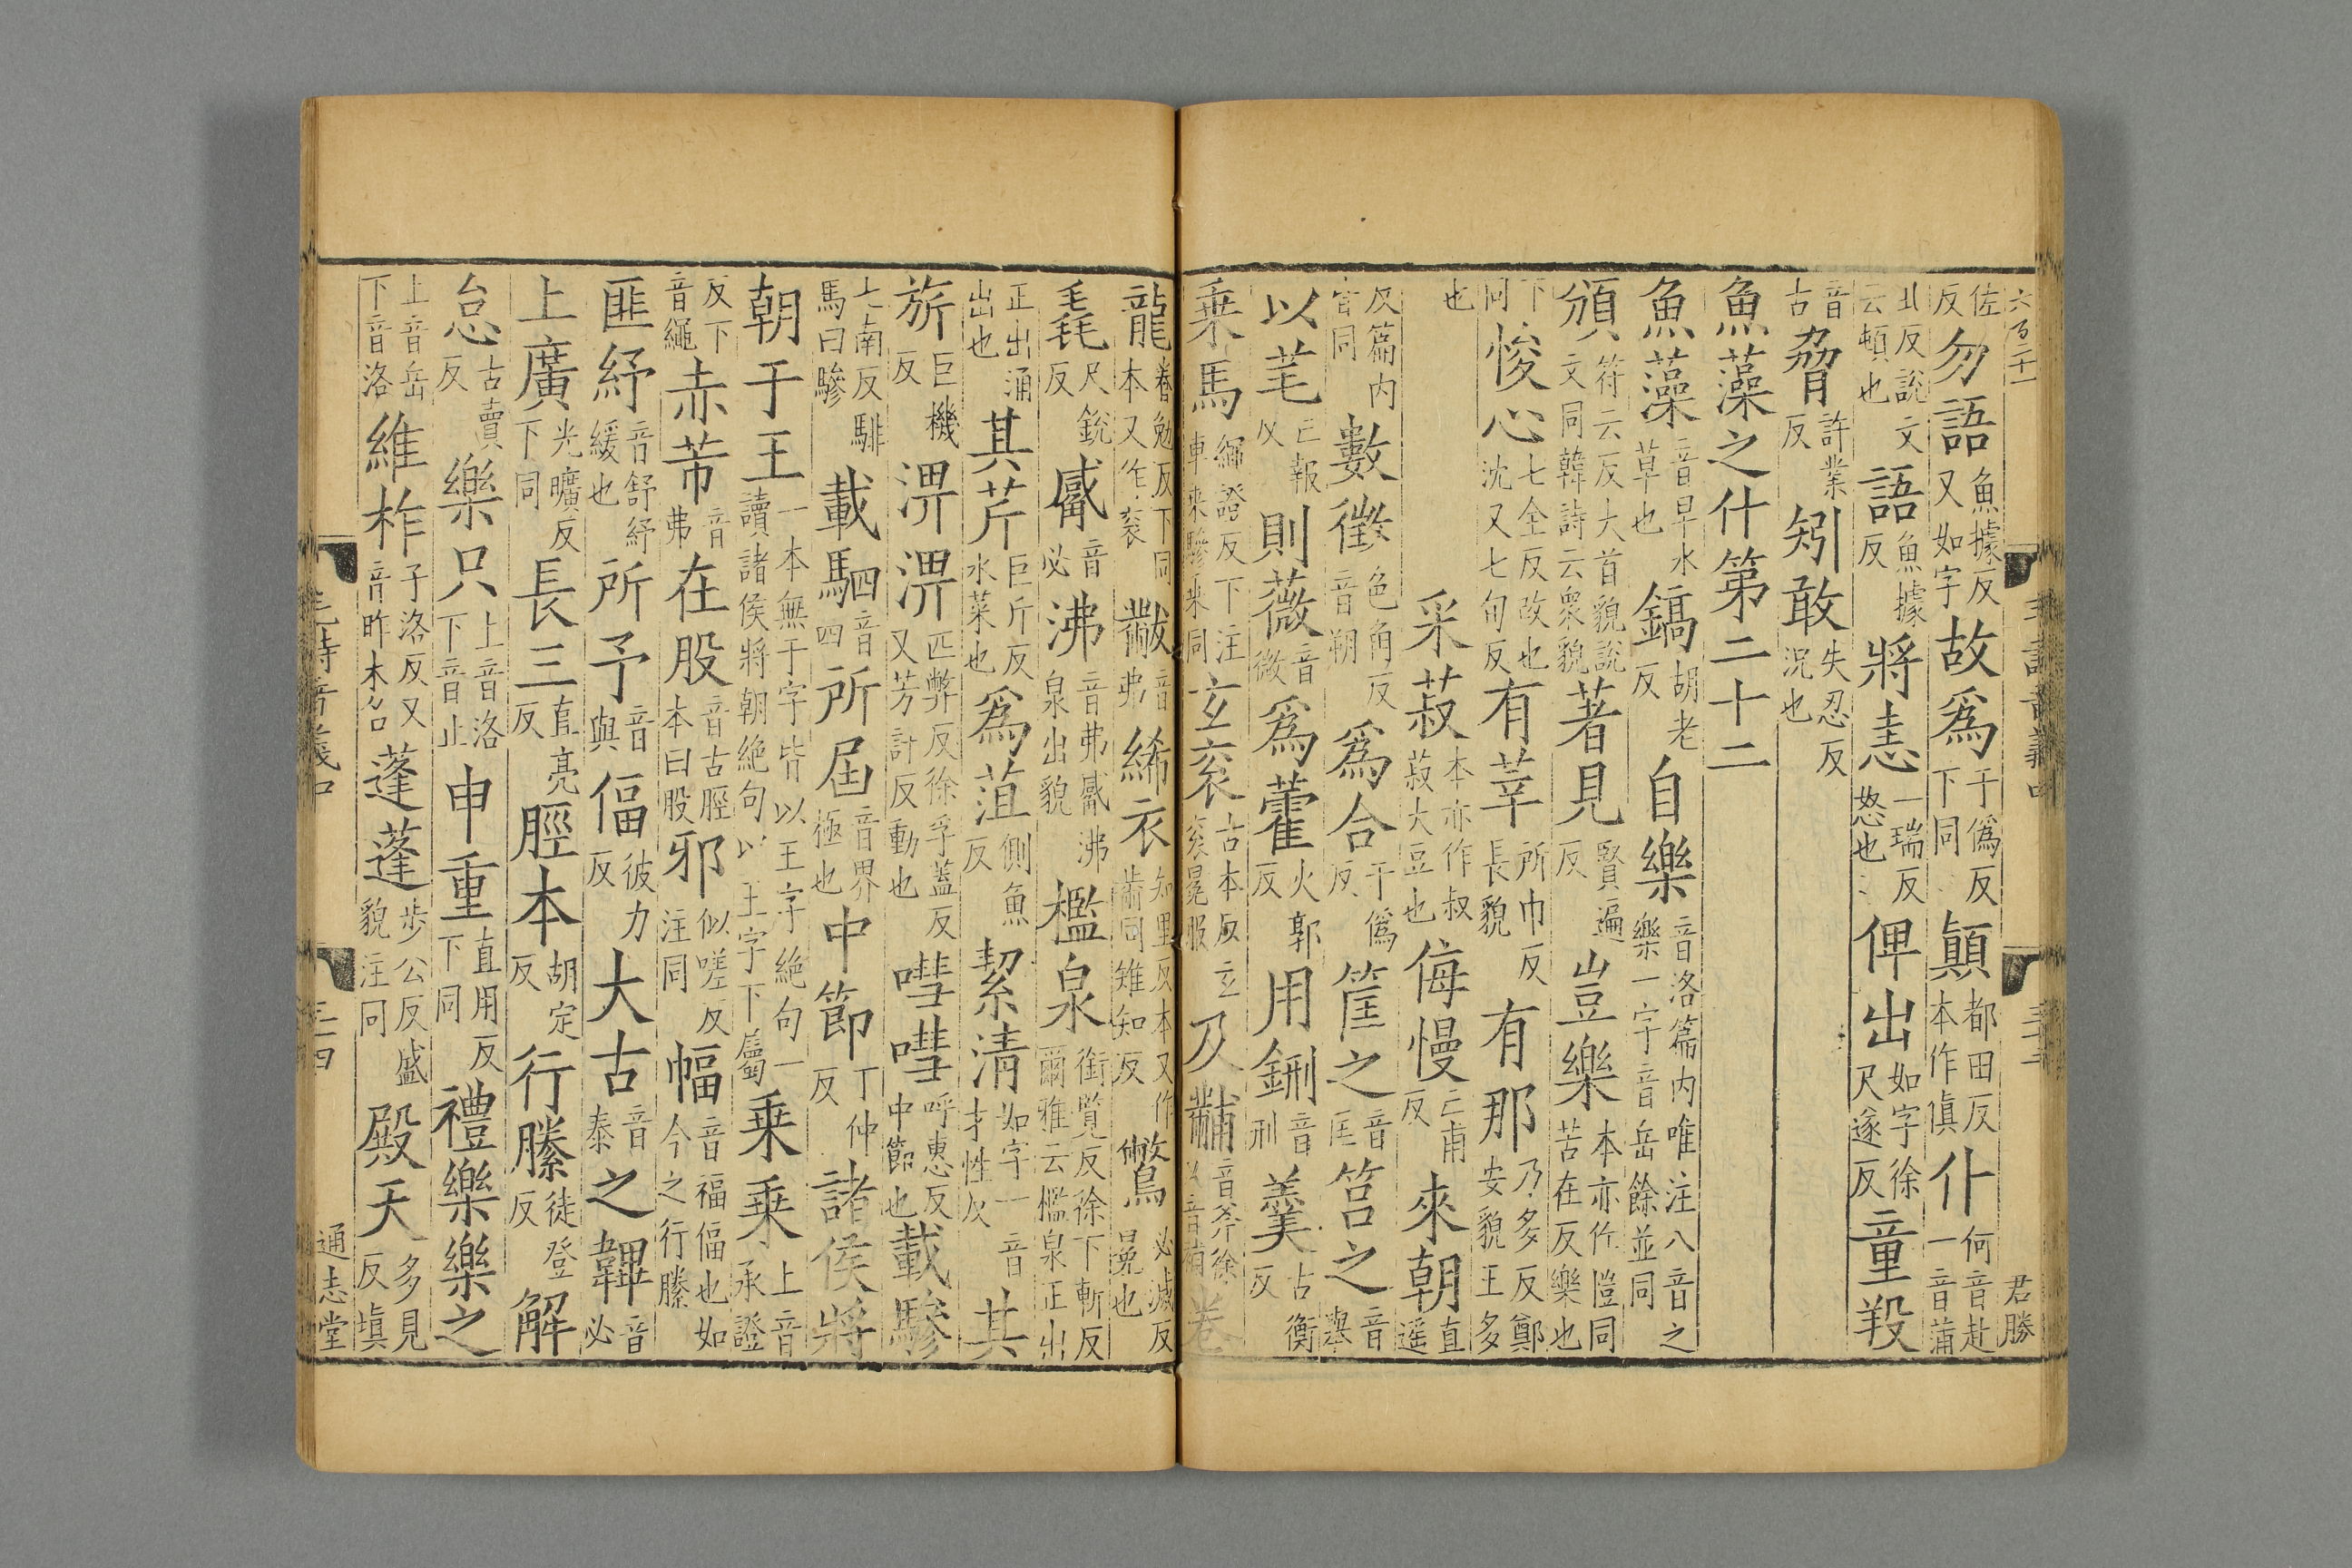 六百二十一 君勝
佐反勿語魚據反又如字故為于偽反下同顛都田反本作傎仆何音赴一音蒲
北反說文云頓也語魚據反將恚一瑞反怒也俾出如字徐尺遂反童羖
音古脅許業反矧敢失忍反況也
魚藻之什第二十二
魚藻音早水草也鎬胡老反自樂音洛篇内唯注八音之樂一字音岳餘並同
頒符云反大首貌說文同韓詩云衆貌著見賢遍反豈樂本亦作愷同苦在反樂也
下同悛心七全反改也沈又七旬反有莘所巾反長貌有那乃多反鄭安貌王多
也
采菽本亦作叔菽大豆也侮慢亡甫反來朝直遥
反篇内皆同數徵色角反音朔為合于偽反筐之音匡筥之音舉
以芼亡報反則薇音微為藿火郭反用鉶音刑羹古衡反
乘馬繩證反下注車來驂來同玄衮古本反玄衮冕服乃黼音斧徐音補卷
龍卷勉反下同本又作衮黻音弗絺衣知里反本又作黹同雉知反鷩必滅反冕也
毳尺銳反觱音必沸音弗觱沸泉出貌檻泉銜覽反徐下斬反爾雅云檻泉正出
正出涌出也其芹巨斤反水菜也為菹側魚反絜清如字一音才性反其
旂巨機反淠淠匹弊反徐孚蓋反又芳計反動也嘒嘒呼惠反中節也載驂
七南反騑馬曰驂載駟音四所屆音界極也中節丁仲反諸侯將
朝于王一本無于字皆以王字絶句一讀諸侯將朝絶句以王字下屬乘乘上音承證
反下音繩赤芾音弗在股音古脛本曰股邪似嗟反注同幅音福偪也如今之行縢
匪紓音舒紓緩也所予音與偪彼力反大古音泰之韠音必
上廣光曠反下同長三直亮反脛本胡定反行縢徒登反解
怠古賣反樂只上音洛下音止申重直用反下同禮樂樂之
上音岳下音洛維柞子洛反又音昨木名蓬蓬步公反盛貌注同殿天多見反填
毛詩音義中 三十四 通志堂